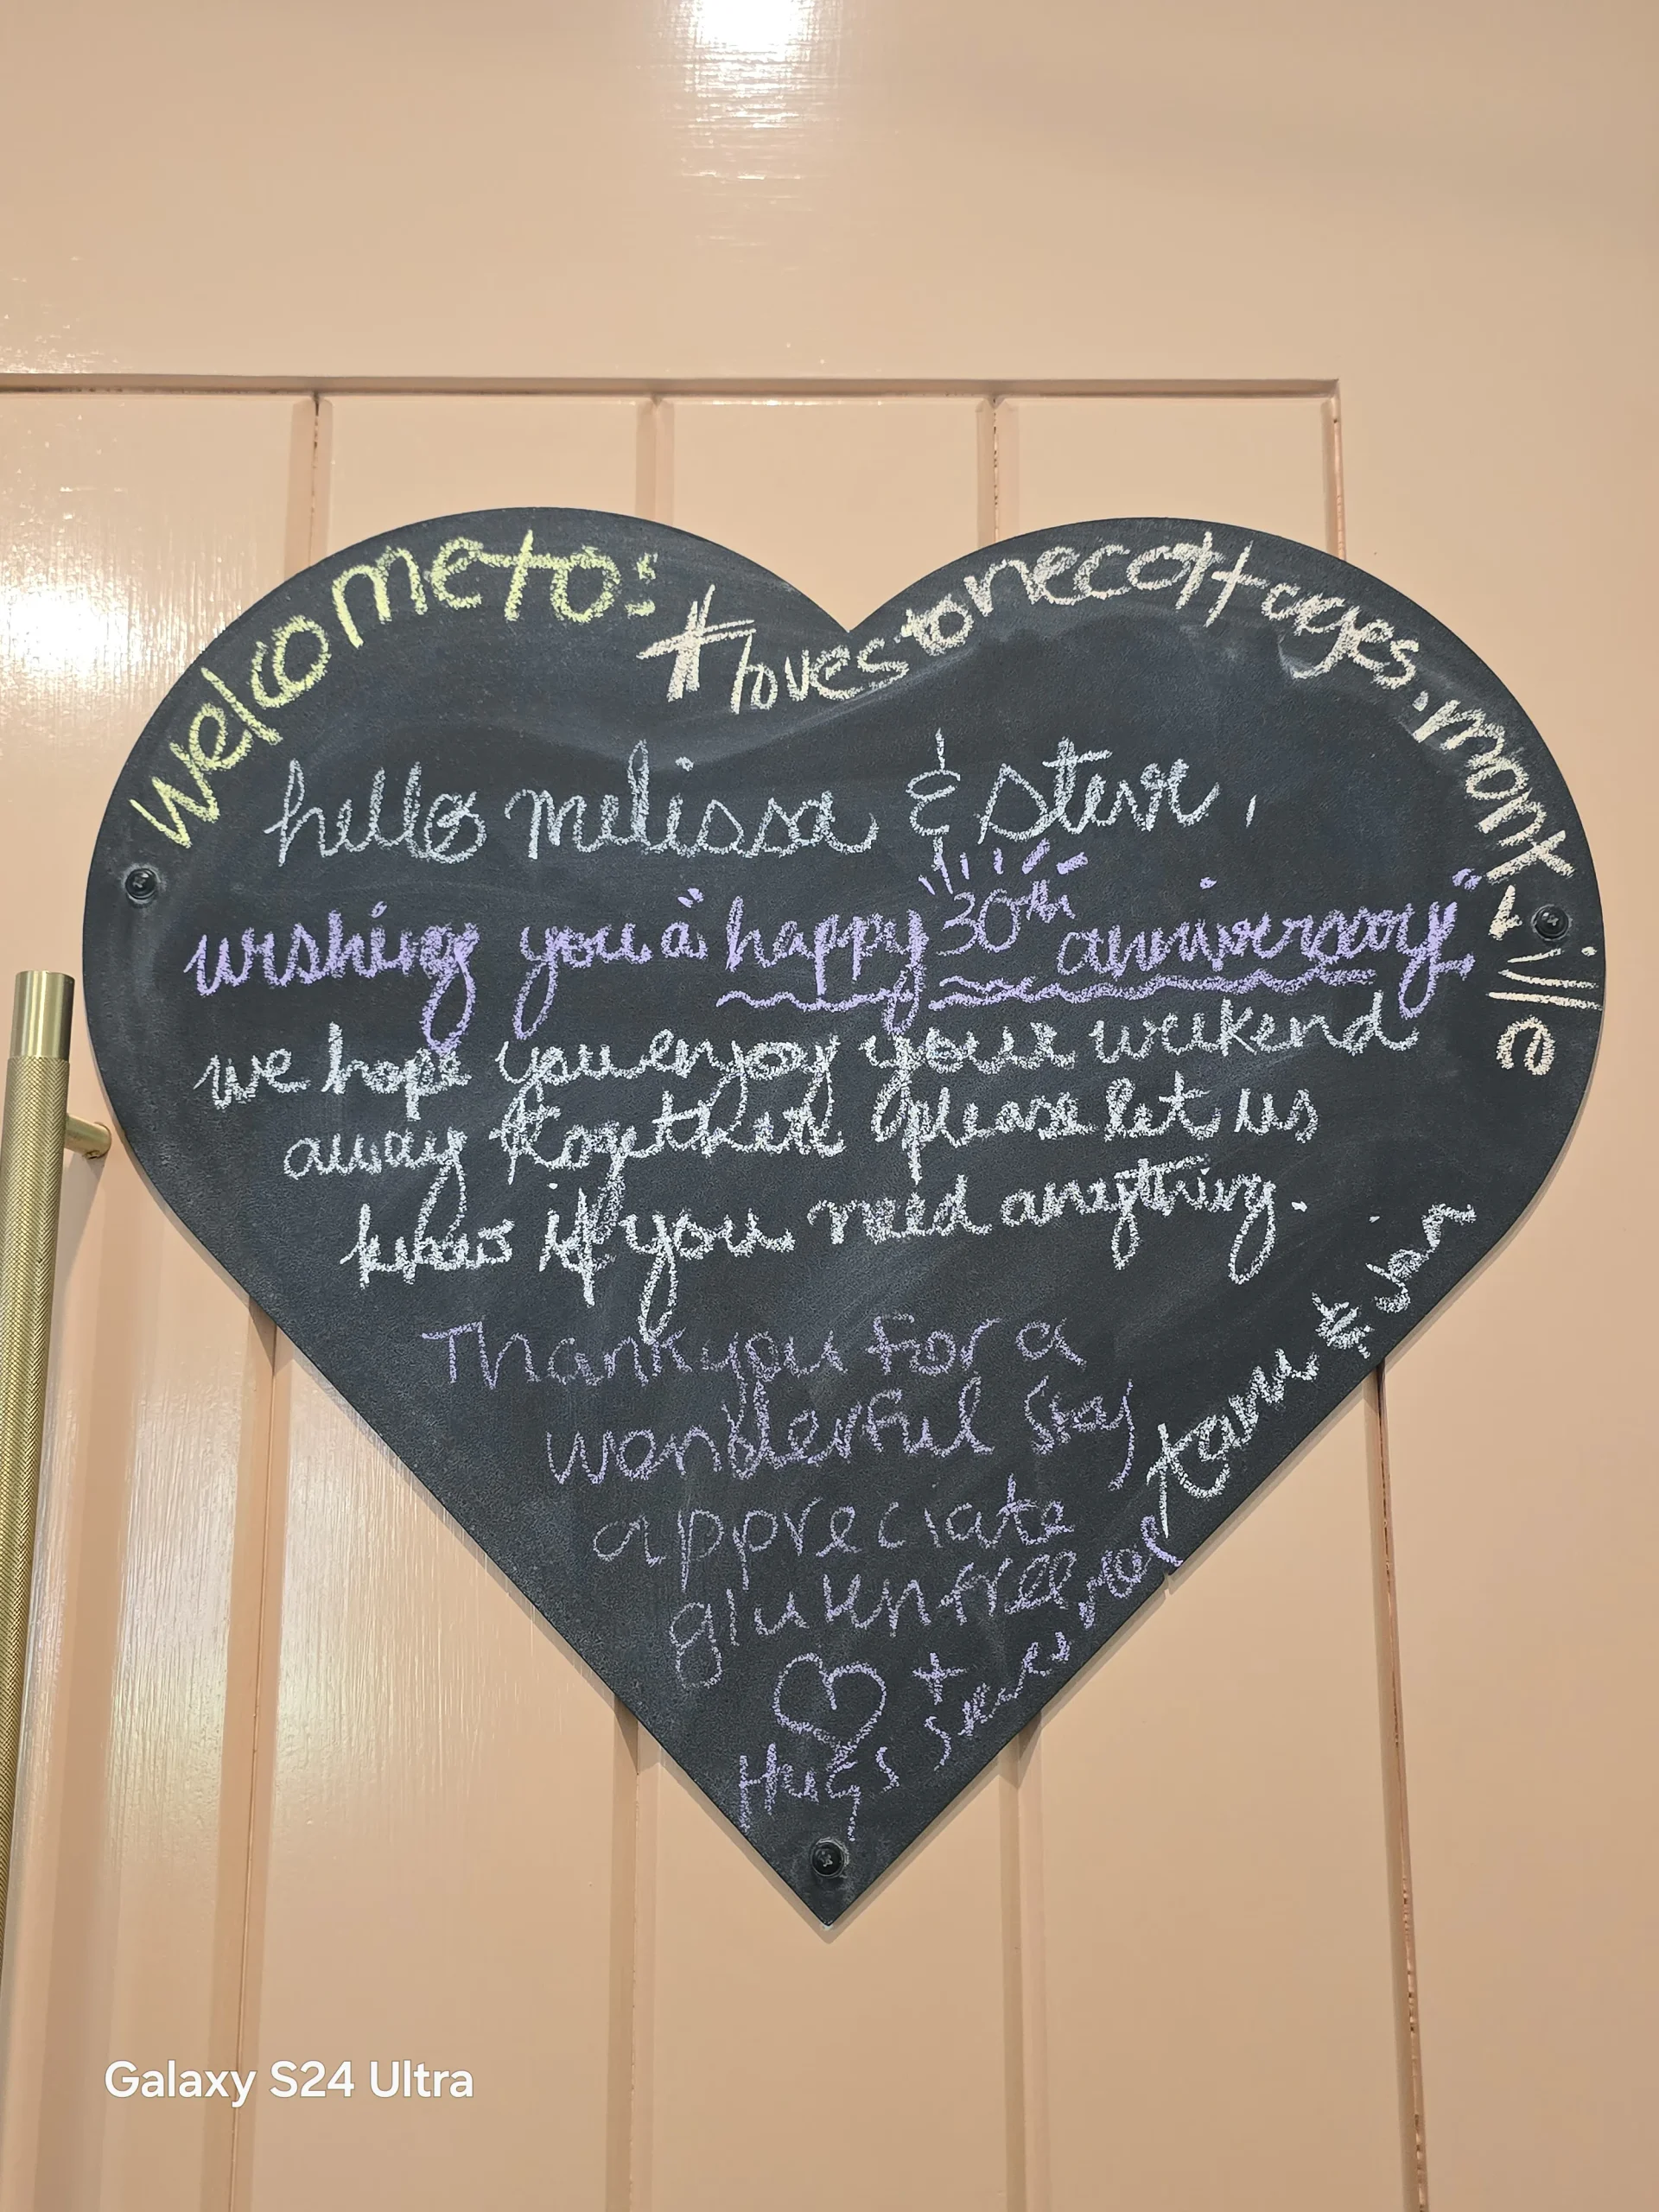 welcome to:
#lovestonecottages.montville
hello melissa & steve,
wishing you a "happy 30th anniversary"
we hope you enjoy your weekend
away together please let us
know if you need anything.
tam & jan
Thankyou for a
wonderful stay
appreciate
gluten free
Hugs
Galaxy S24 Ultra